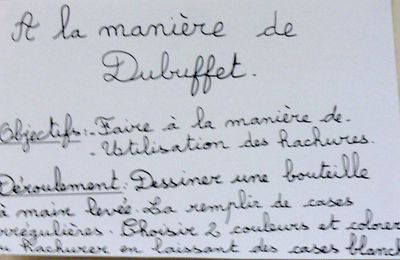 A la manière de
Dubuffet.
Objectifs: - Faire à la manière de.
- Utilisation des hachures.
Déroulement: Dessiner une bouteille
à main levée. La remplir de cases
irrégulières. Choisir 2 couleurs et colorer
ou hachurer en laissant des cases blanch